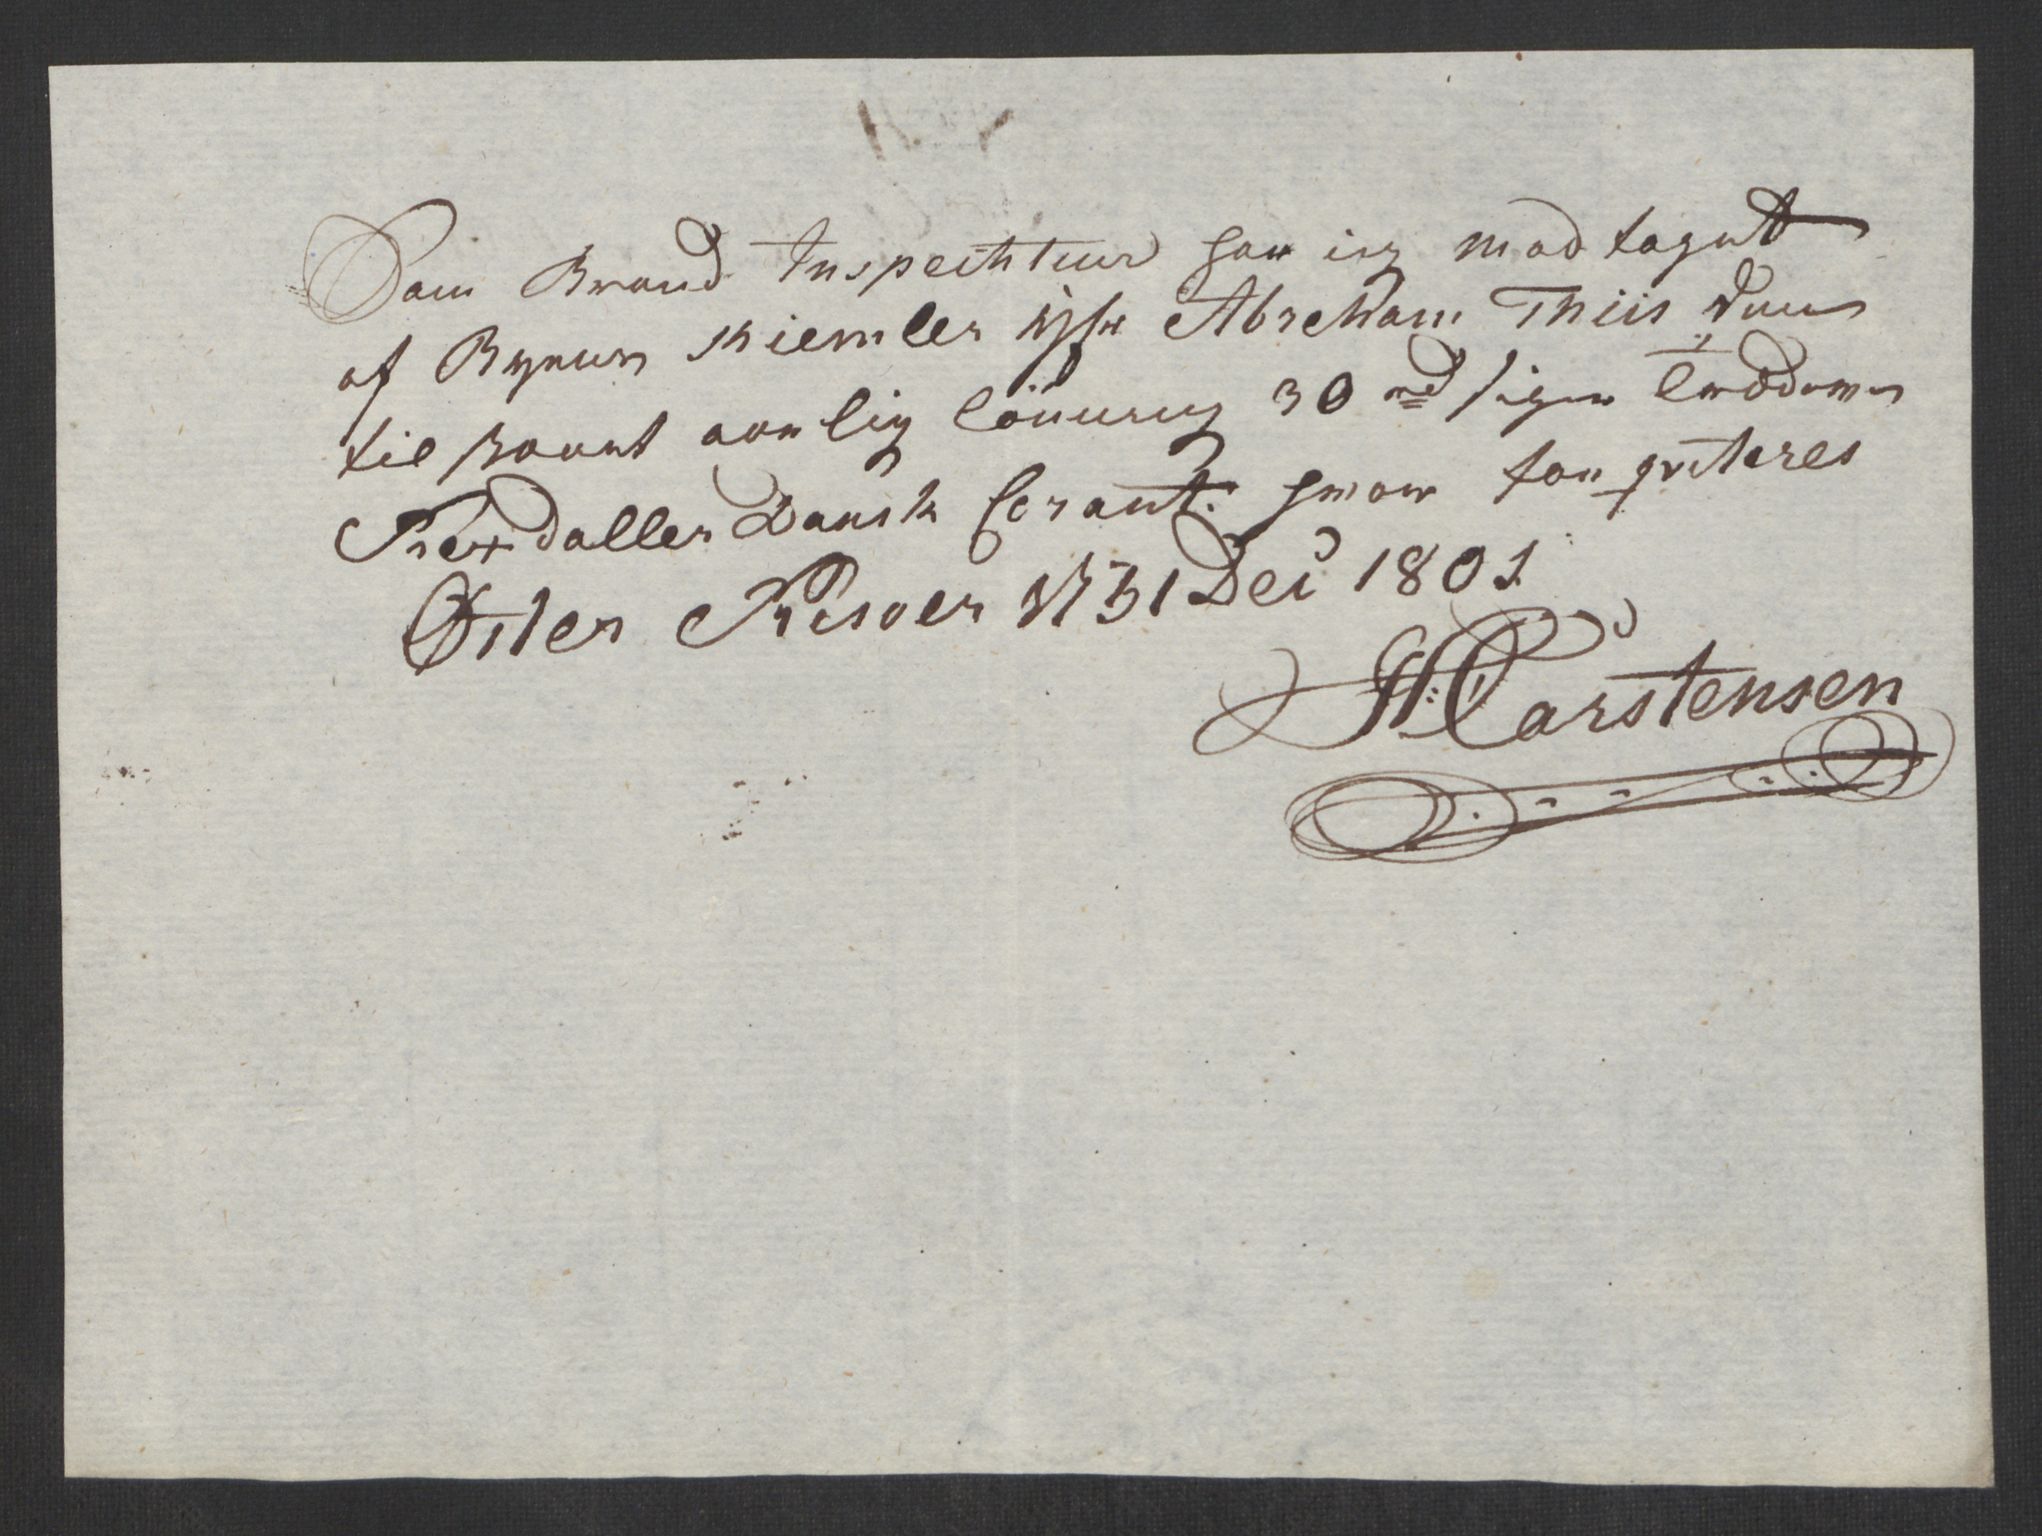 Som Brand Inspechteur har ieg Modtaget
af Byens Kiemler Hr Abreham Thiis den
til staaet aarlig Lönning 30 rd siger Tredeve
Rexdaller Dansk Corant. hvor for qviteres
Öster Riisöer d 31 Dec 1801
H: Carstensen